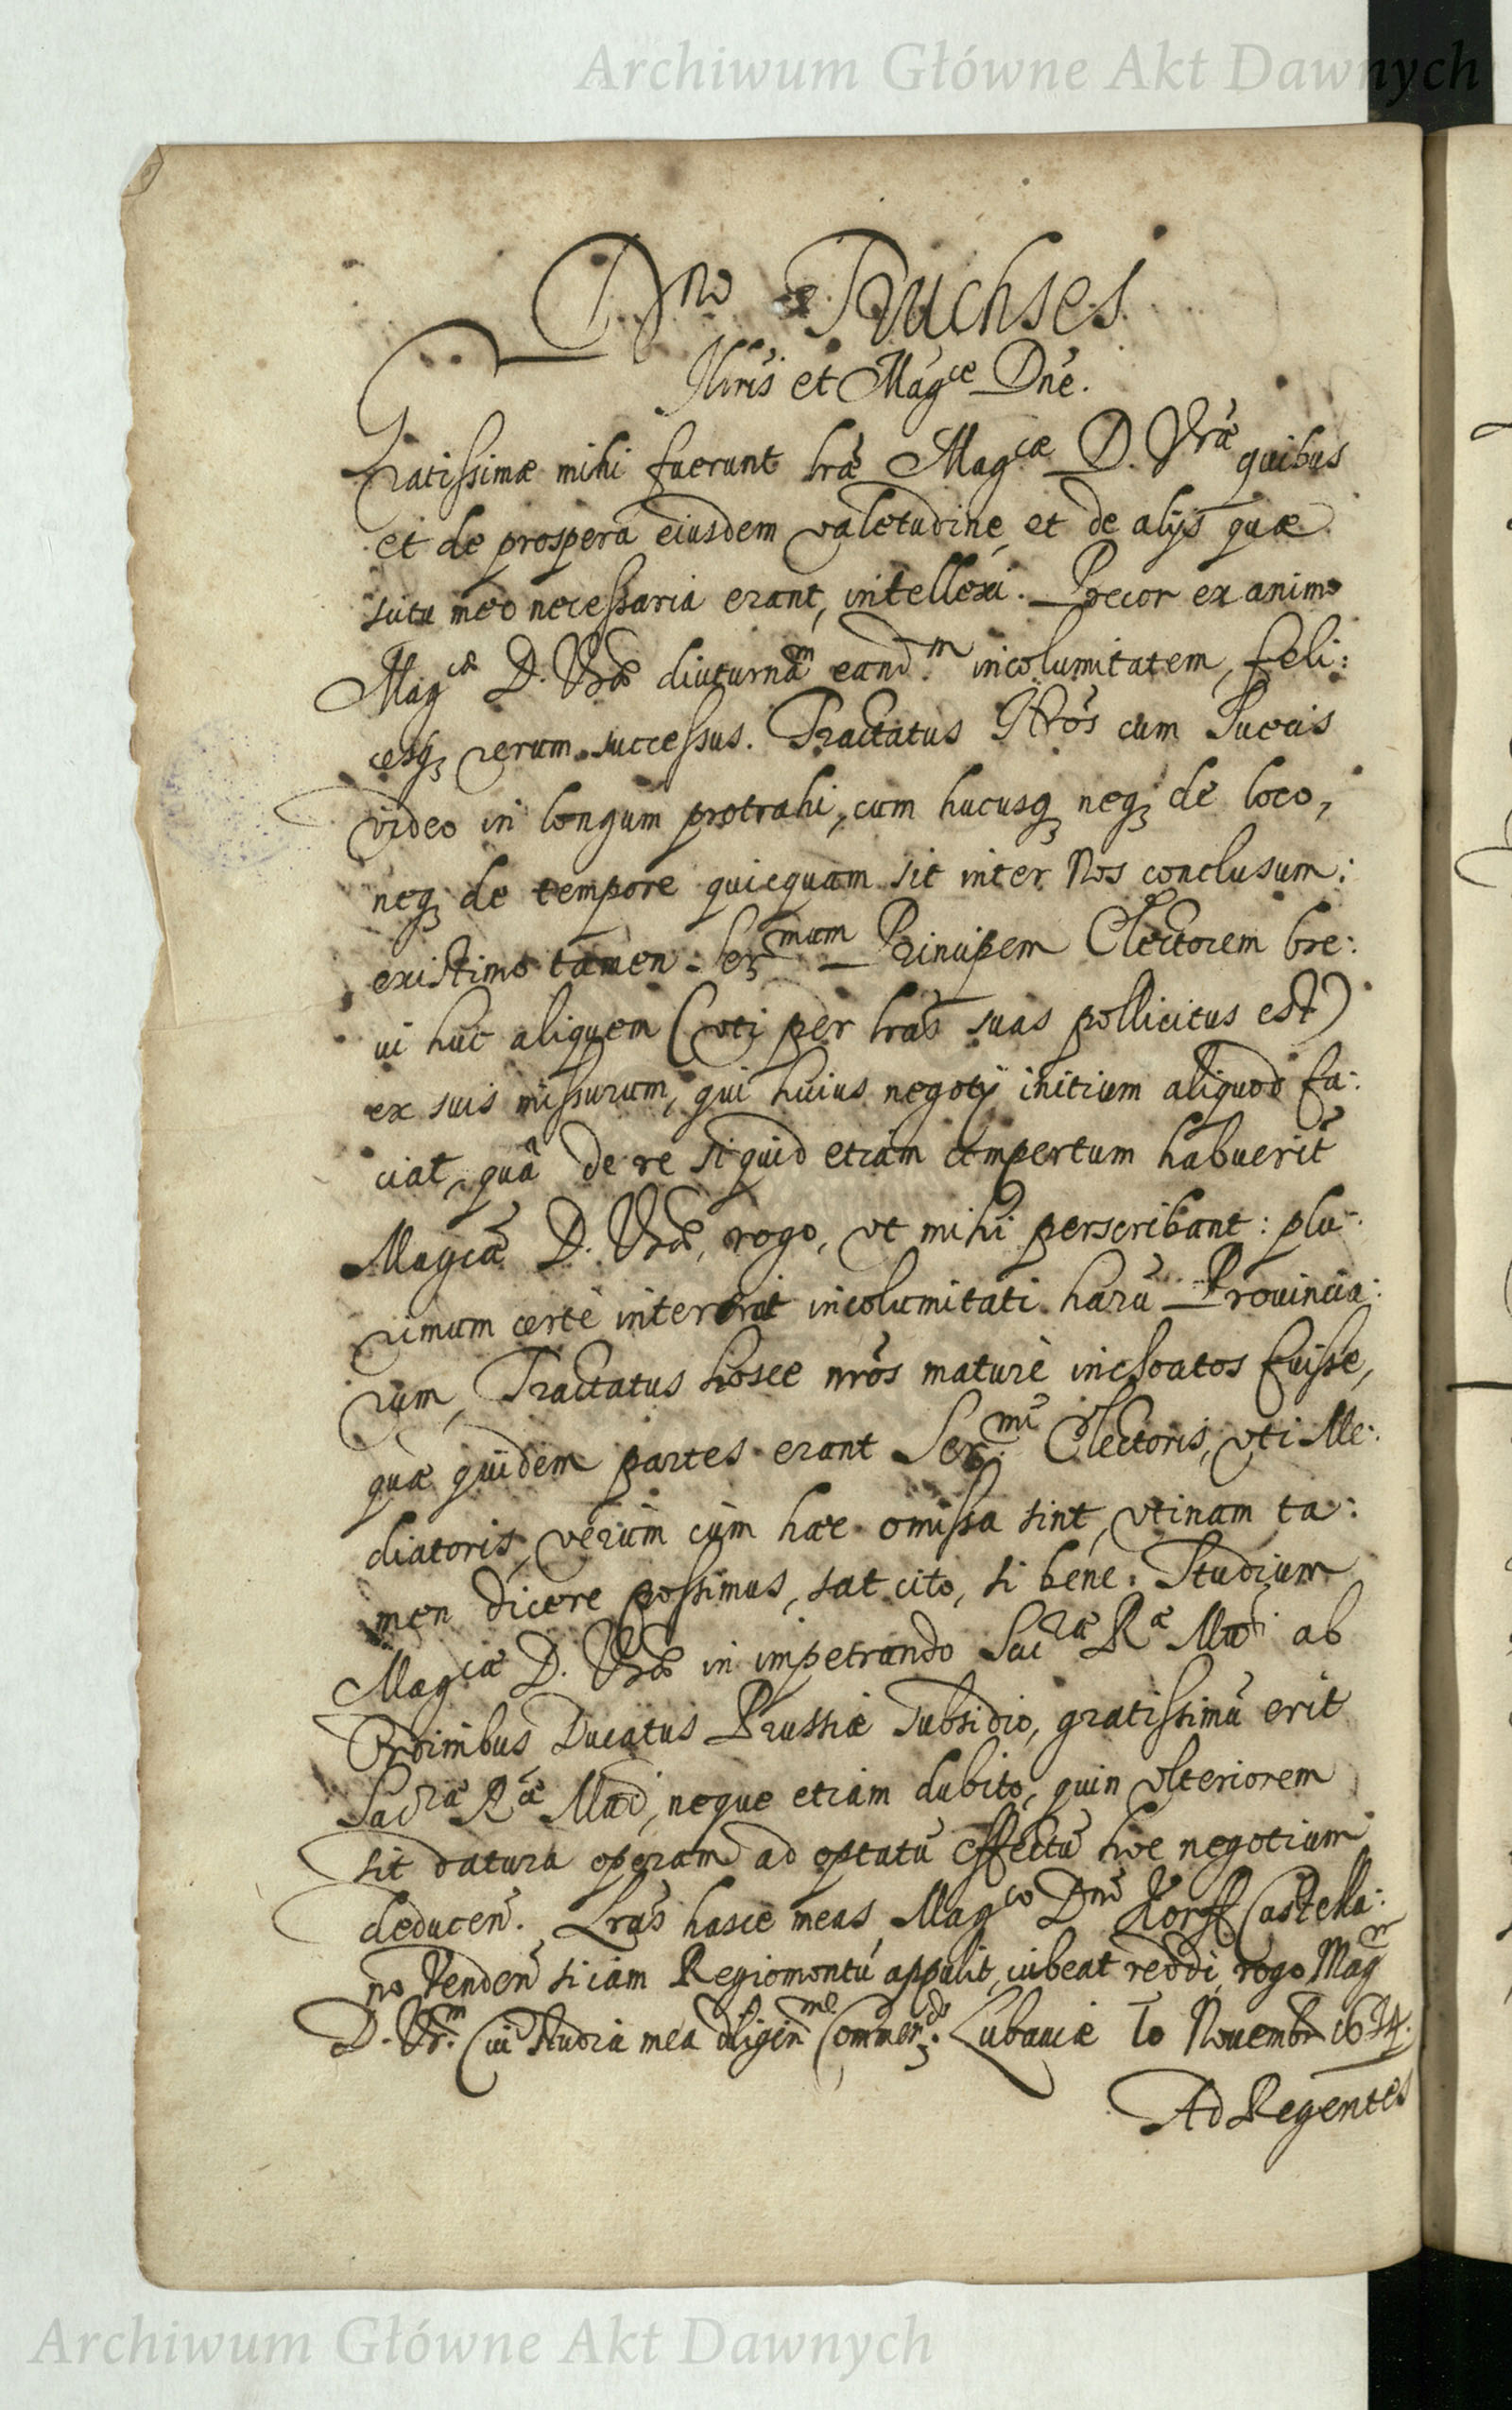 Archiwum Główne Akt Dawnych
Dno Truchses
Illris et Magce Dne.
Gratissimæ mihi fuerunt lræ Magcæ D. Vræ quibus
et de prospera eiusdem valetudine, et de alijs quæ
scitu meo necessaria erant, intellexi. Precor ex animo
Magcæ D. Vræ diuturnam eandm incolumitatem, feli:
cesq3 rerum successus. Tractatus Nros cum Suecis
video in longum protrahi, cum hucusq3 neq3 de loco,
neq3 de tempore quicquam sit inter Nos conclusum:
existimo tamen Sermum Principem Electorem bre:
ui huc aliquem (vti per lras suas pollicitus est)
ex suis missurum, qui huius negotij initium aliquod fa:
ciat, quâ de re si quid etiam compertum habuerit
Magcæ D. Vræ, rogo, vt mihi perscribant: plu:
rimum certè intererat incolumitati harũ Prouincia:
rum, Tractatus hosce nros maturè inchoatos fuisse,
quæ quidem partes erant Sermi Electoris, vti Me:
diatoris, verùm cùm hæc omissa sint, vtinam ta:
men dicere possimus, sat cito, si bene. Studium
Magcæ D. Vræ in impetrando Sacræ Ræ Mati ab
Ordinibus Ducatus Prussiæ Subsidio, gratissimũ erit
Sacræ Ræ Mati, neque etiam dubito, quin vlteriorem
sit datura operam ad optatũ effectũ hoc negotium
deducen. Lras hasce meas Magco Dno Korff Castella:
no Venden si iam Regiomontũ appulit, iubeat reddi, rogo Magm
D. Vrm. Cui studia mea diligenme Commendo. Lubauiæ 10 Novembr 1634.
Ad Regentes
Archiwum Główne Akt Dawnych